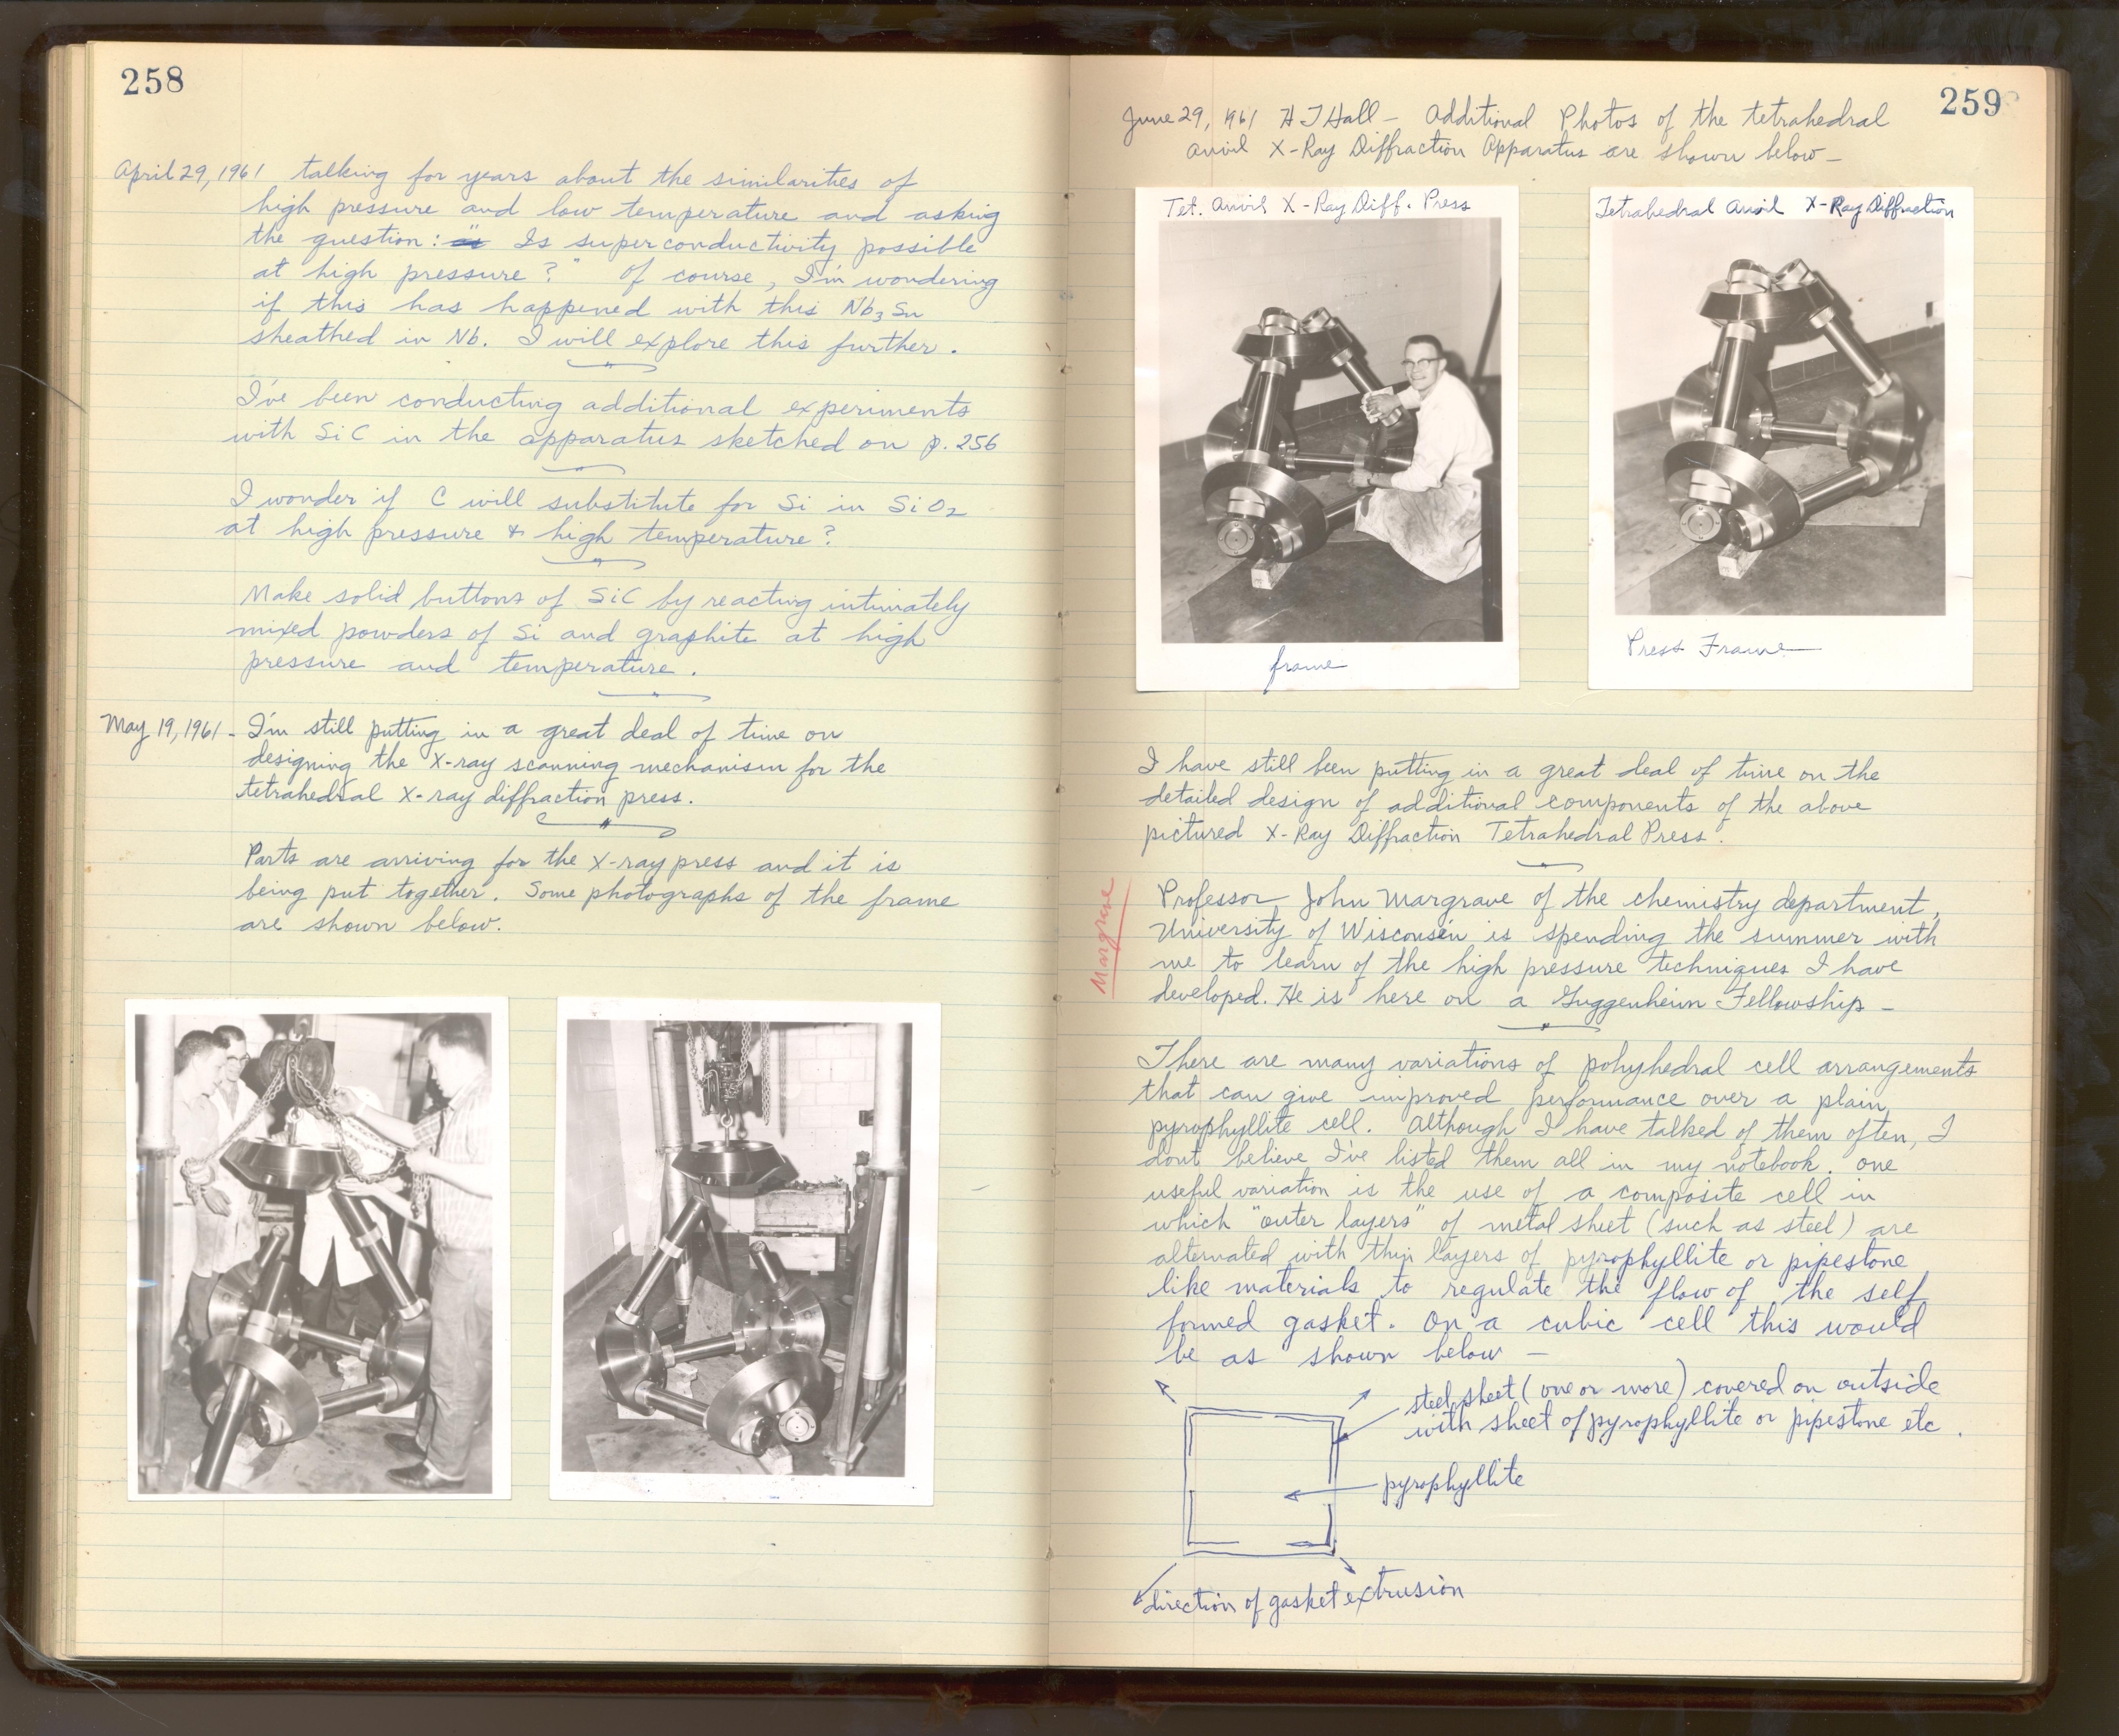 258
April 29, 1961 talking for years about the similarities of
high pressure and low temperature and asking
the question: " Is superconductivity possible
at high pressure?" Of course, I'm wondering
if this has happened with this Nb3Sn
sheathed in Nb. I will explore this further.
I've been conducting additional experiments
with SiC in the apparatus sketched on p. 256
I wonder if C will substitute for Si in SiO2
at high pressure & high temperature?
Make solid buttons of SiC by reacting intimately
mixed powders of Si and graphite at high
pressure and temperature.
May 19, 1961 - I'm still putting in a great deal of time on
designing the X-ray scanning mechanism for the
tetrahedral X-ray diffraction press.
Parts are arriving for the X-ray press and it is
being put together. Some photographs of the frame
are shown below.
259
June 29, 1961 H T Hall - Additional Photos of the tetrahedral
anvil X-Ray Diffraction Apparatus are shown below -
Tet. Anvil X-Ray Diff. Press
frame
Tetrahedral Anvil X-Ray Diffraction
Press Frame
I have still been putting in a great deal of time on the
detailed design of additional components of the above
pictured X-Ray Diffraction Tetrahedral Press.
Margrave
Professor John Margrave of the chemistry department,
University of Wisconsin is spending the summer with
me to learn of the high pressure techniques I have
developed. He is here on a Guggenheim Fellowship -
There are many variations of pohyhedral cell arrangements
that can give improved performance over a plain
pyrophyllite cell. Although I have talked of them often, I
dont believe I've listed them all in my notebook. One
useful variation is the use of a composite cell in
which "outer layers" of metal sheet (such as steel) are
alternated with thin layers of pyrophyllite or pipestone
like materials to regulate the flow of the self
formed gasket. On a cubic cell this would
be as shown below -
steel sheet (one or more) covered on outside
with sheet of pyrophyllite or pipestone etc.
pyrophyllite
direction of gasket extrusion